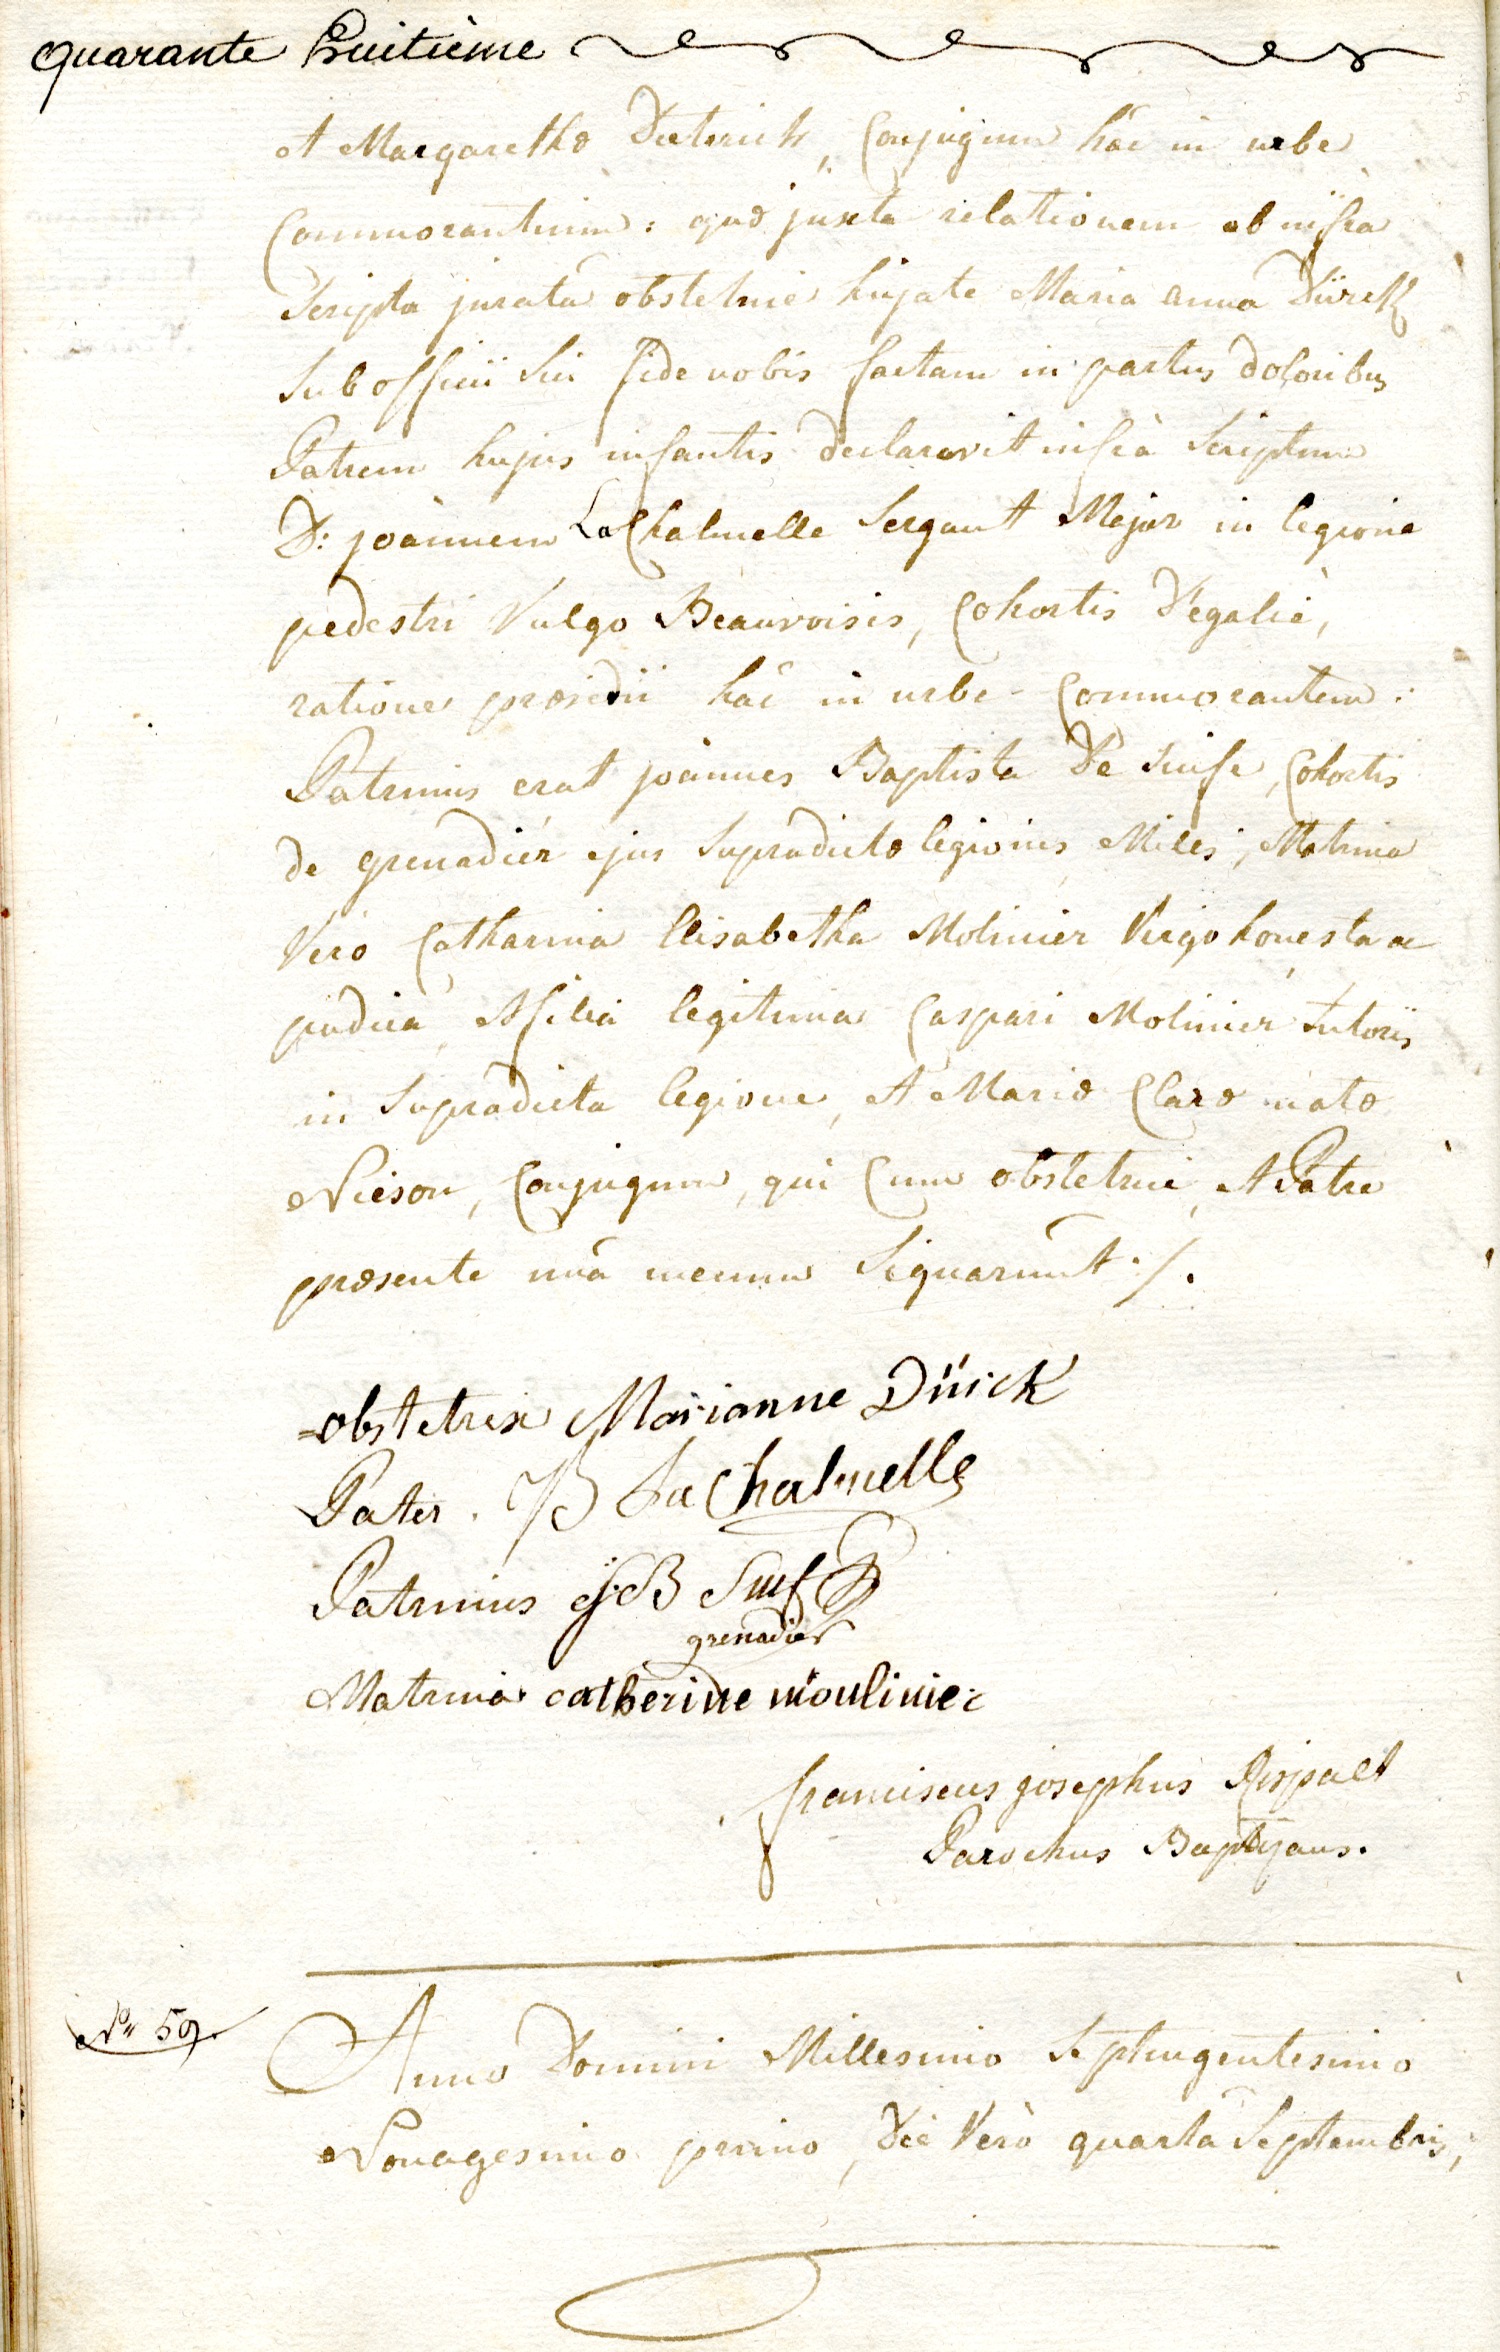 quarante huitième
et Margarethæ Dietrich, Conjugum hâc in urbe
Commorantium: quæ juxta relationem ab infra
Scripta jurata obstetrice hujate Maria anna Dürck
Sub officii Sui fide nobis factam in partus doloribus
Patrem hujus infantis declaravit infrà Scriptum
D: joannem LaChalmelle Sergant Major in legione
pedestri Vulgo Beauvoisis, Cohortis
ratione præsidii hâc in urbe Commorantem:
Patrinus erat joannes Baptista De Suise, Cohortis
de grenadier ejus Supradictæ legionis Miles, Matrina
Vero Catharina Elisabetha Molinier Virgo honesta ac
pudica, filia legitima Caspari Molinier Sutoris
in Supradicta legione, et Mariæ Claræ natæ
Nieson, Conjugum, qui Cum obstetrice, et Patre
præsente unà mecum Signarunt ./.
obstetrix Marianne Dürck
Pater. JB La Chalmelle
Patrinus JB Suisse
grenadier
Matrina catherine moulinier
franciscus josephus Rispalt
Parochus Baptizans.
N° 59.
Anno Domini Millesimo Septingentesimo
Nonagesimo primo, Die Verò quarta Septembris,